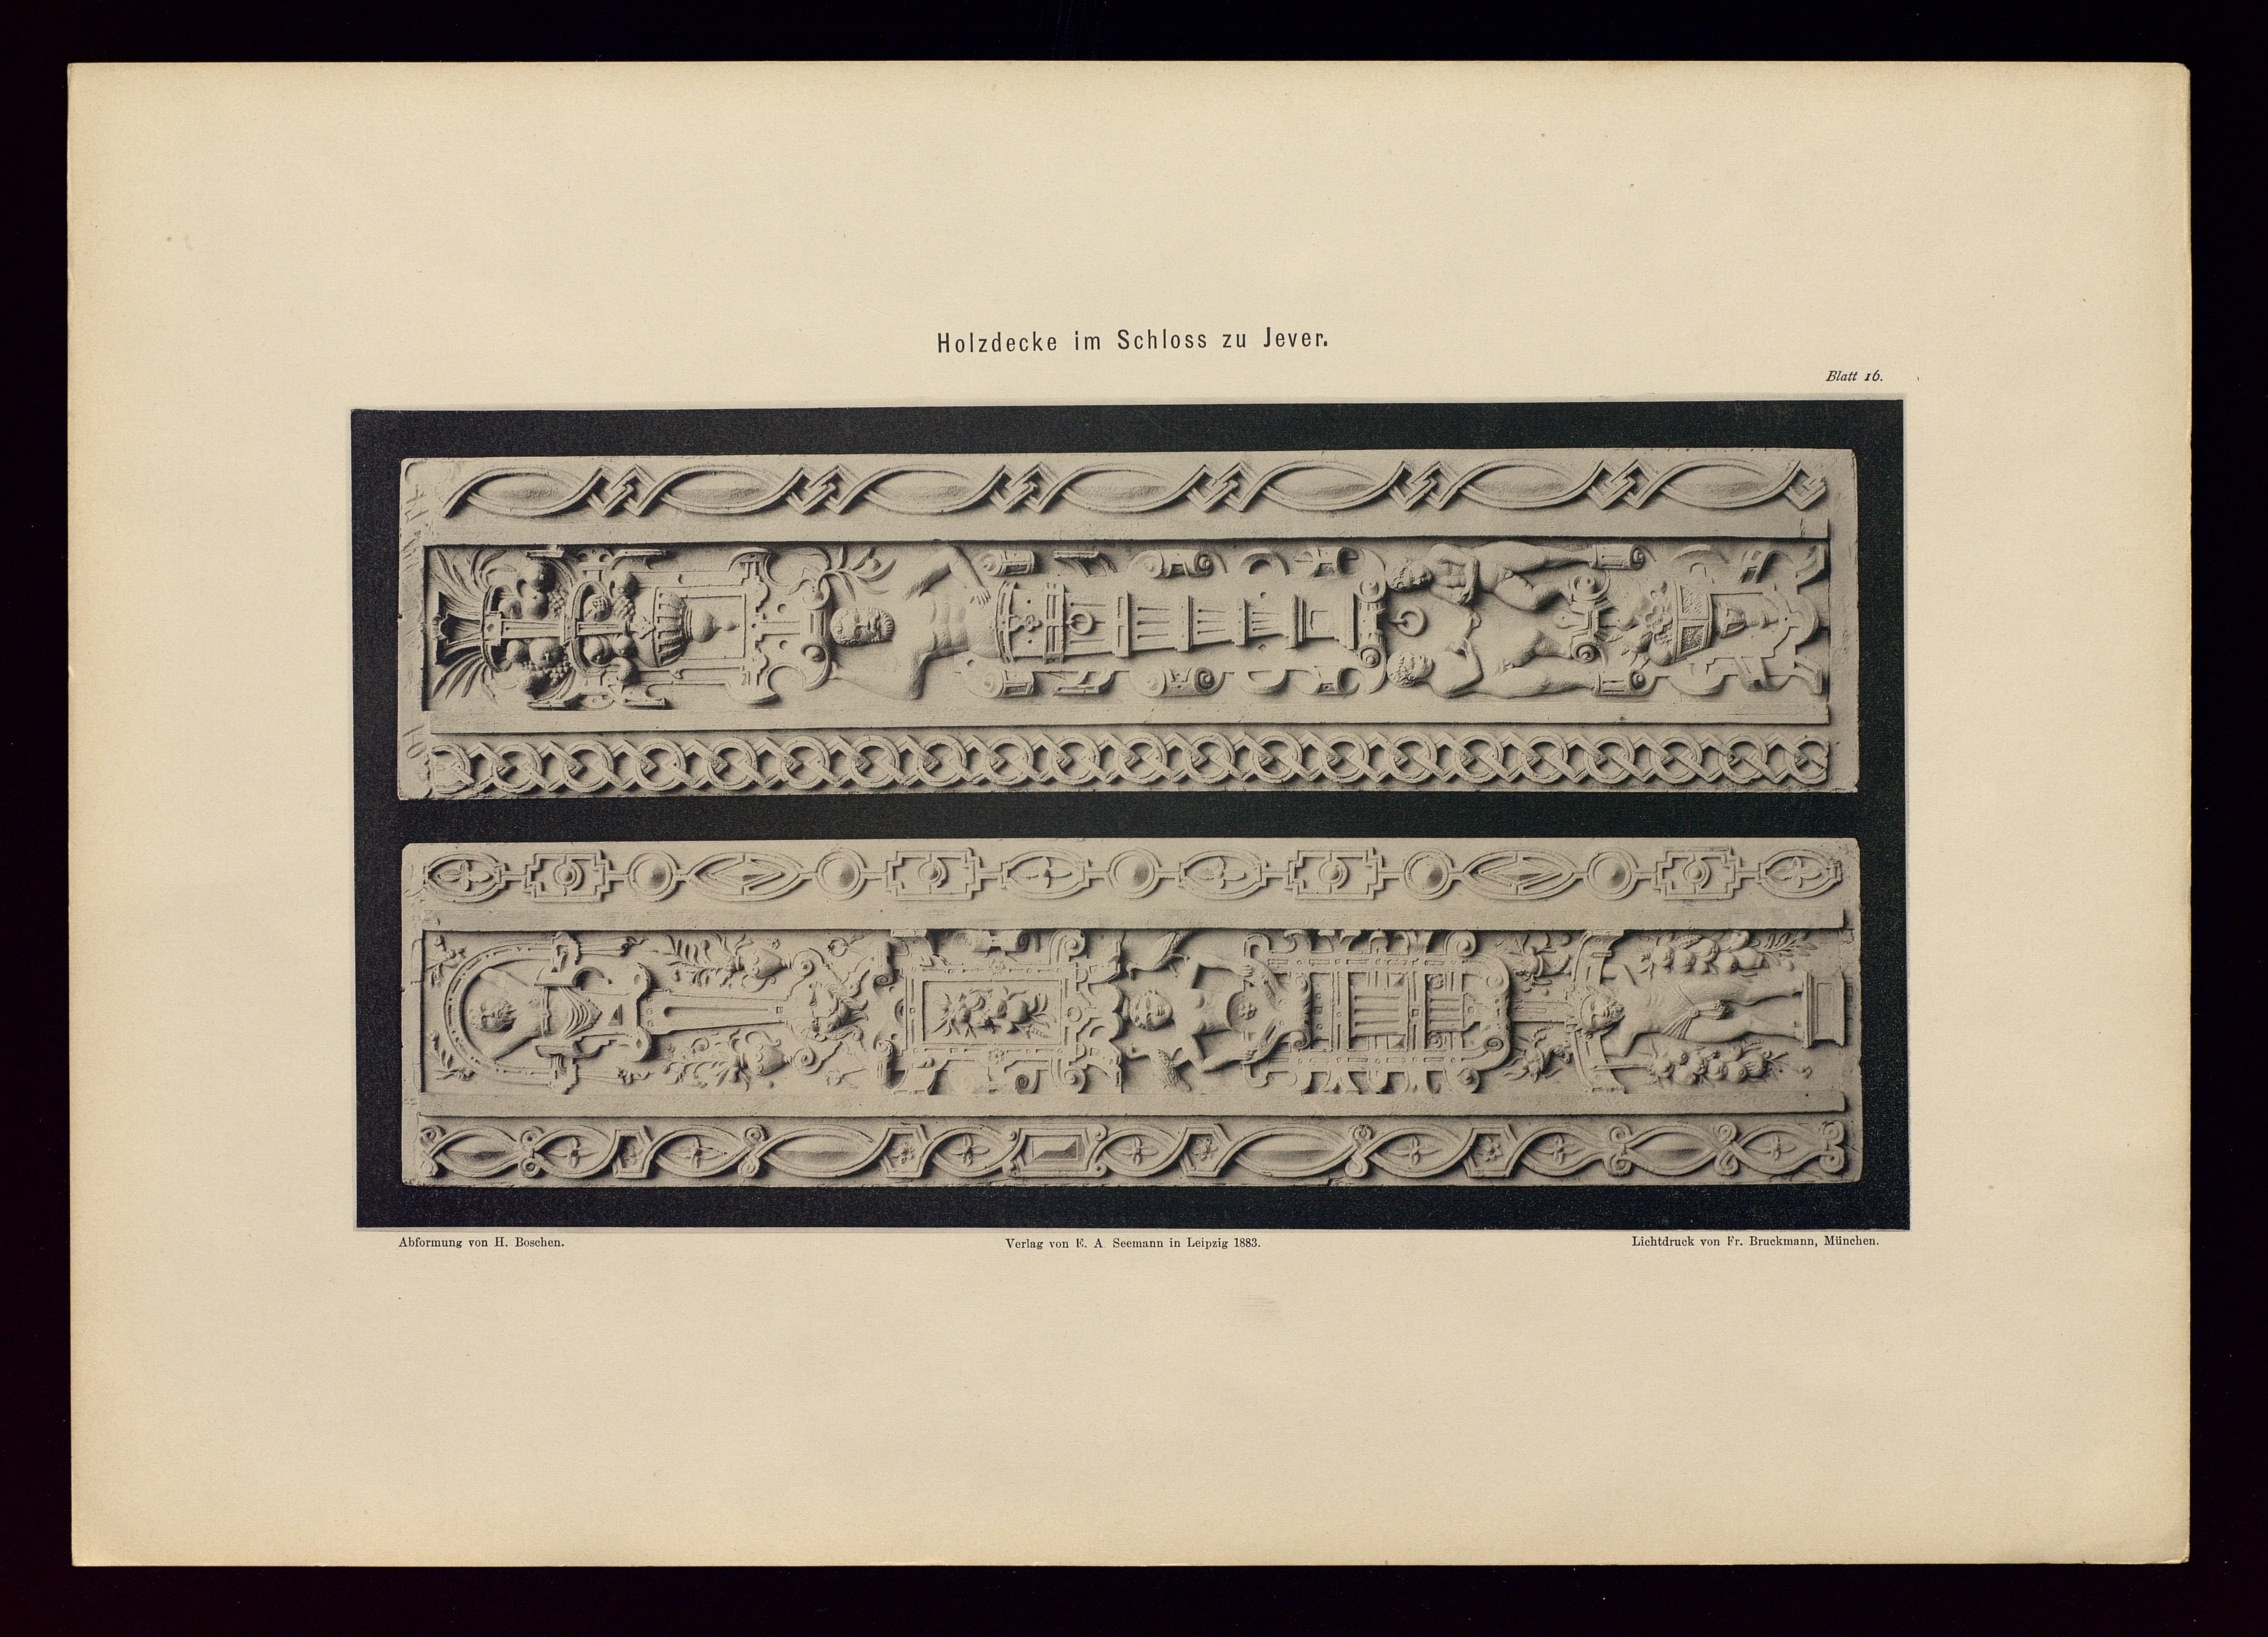 Holzdecke im Schloss zu Jever.
Blatt 16.
Abformung von H. Boschen.
Verlag von E. A Seemann in Leipzig 1883.
Lichtdruck von Fr. Bruckmann, München.